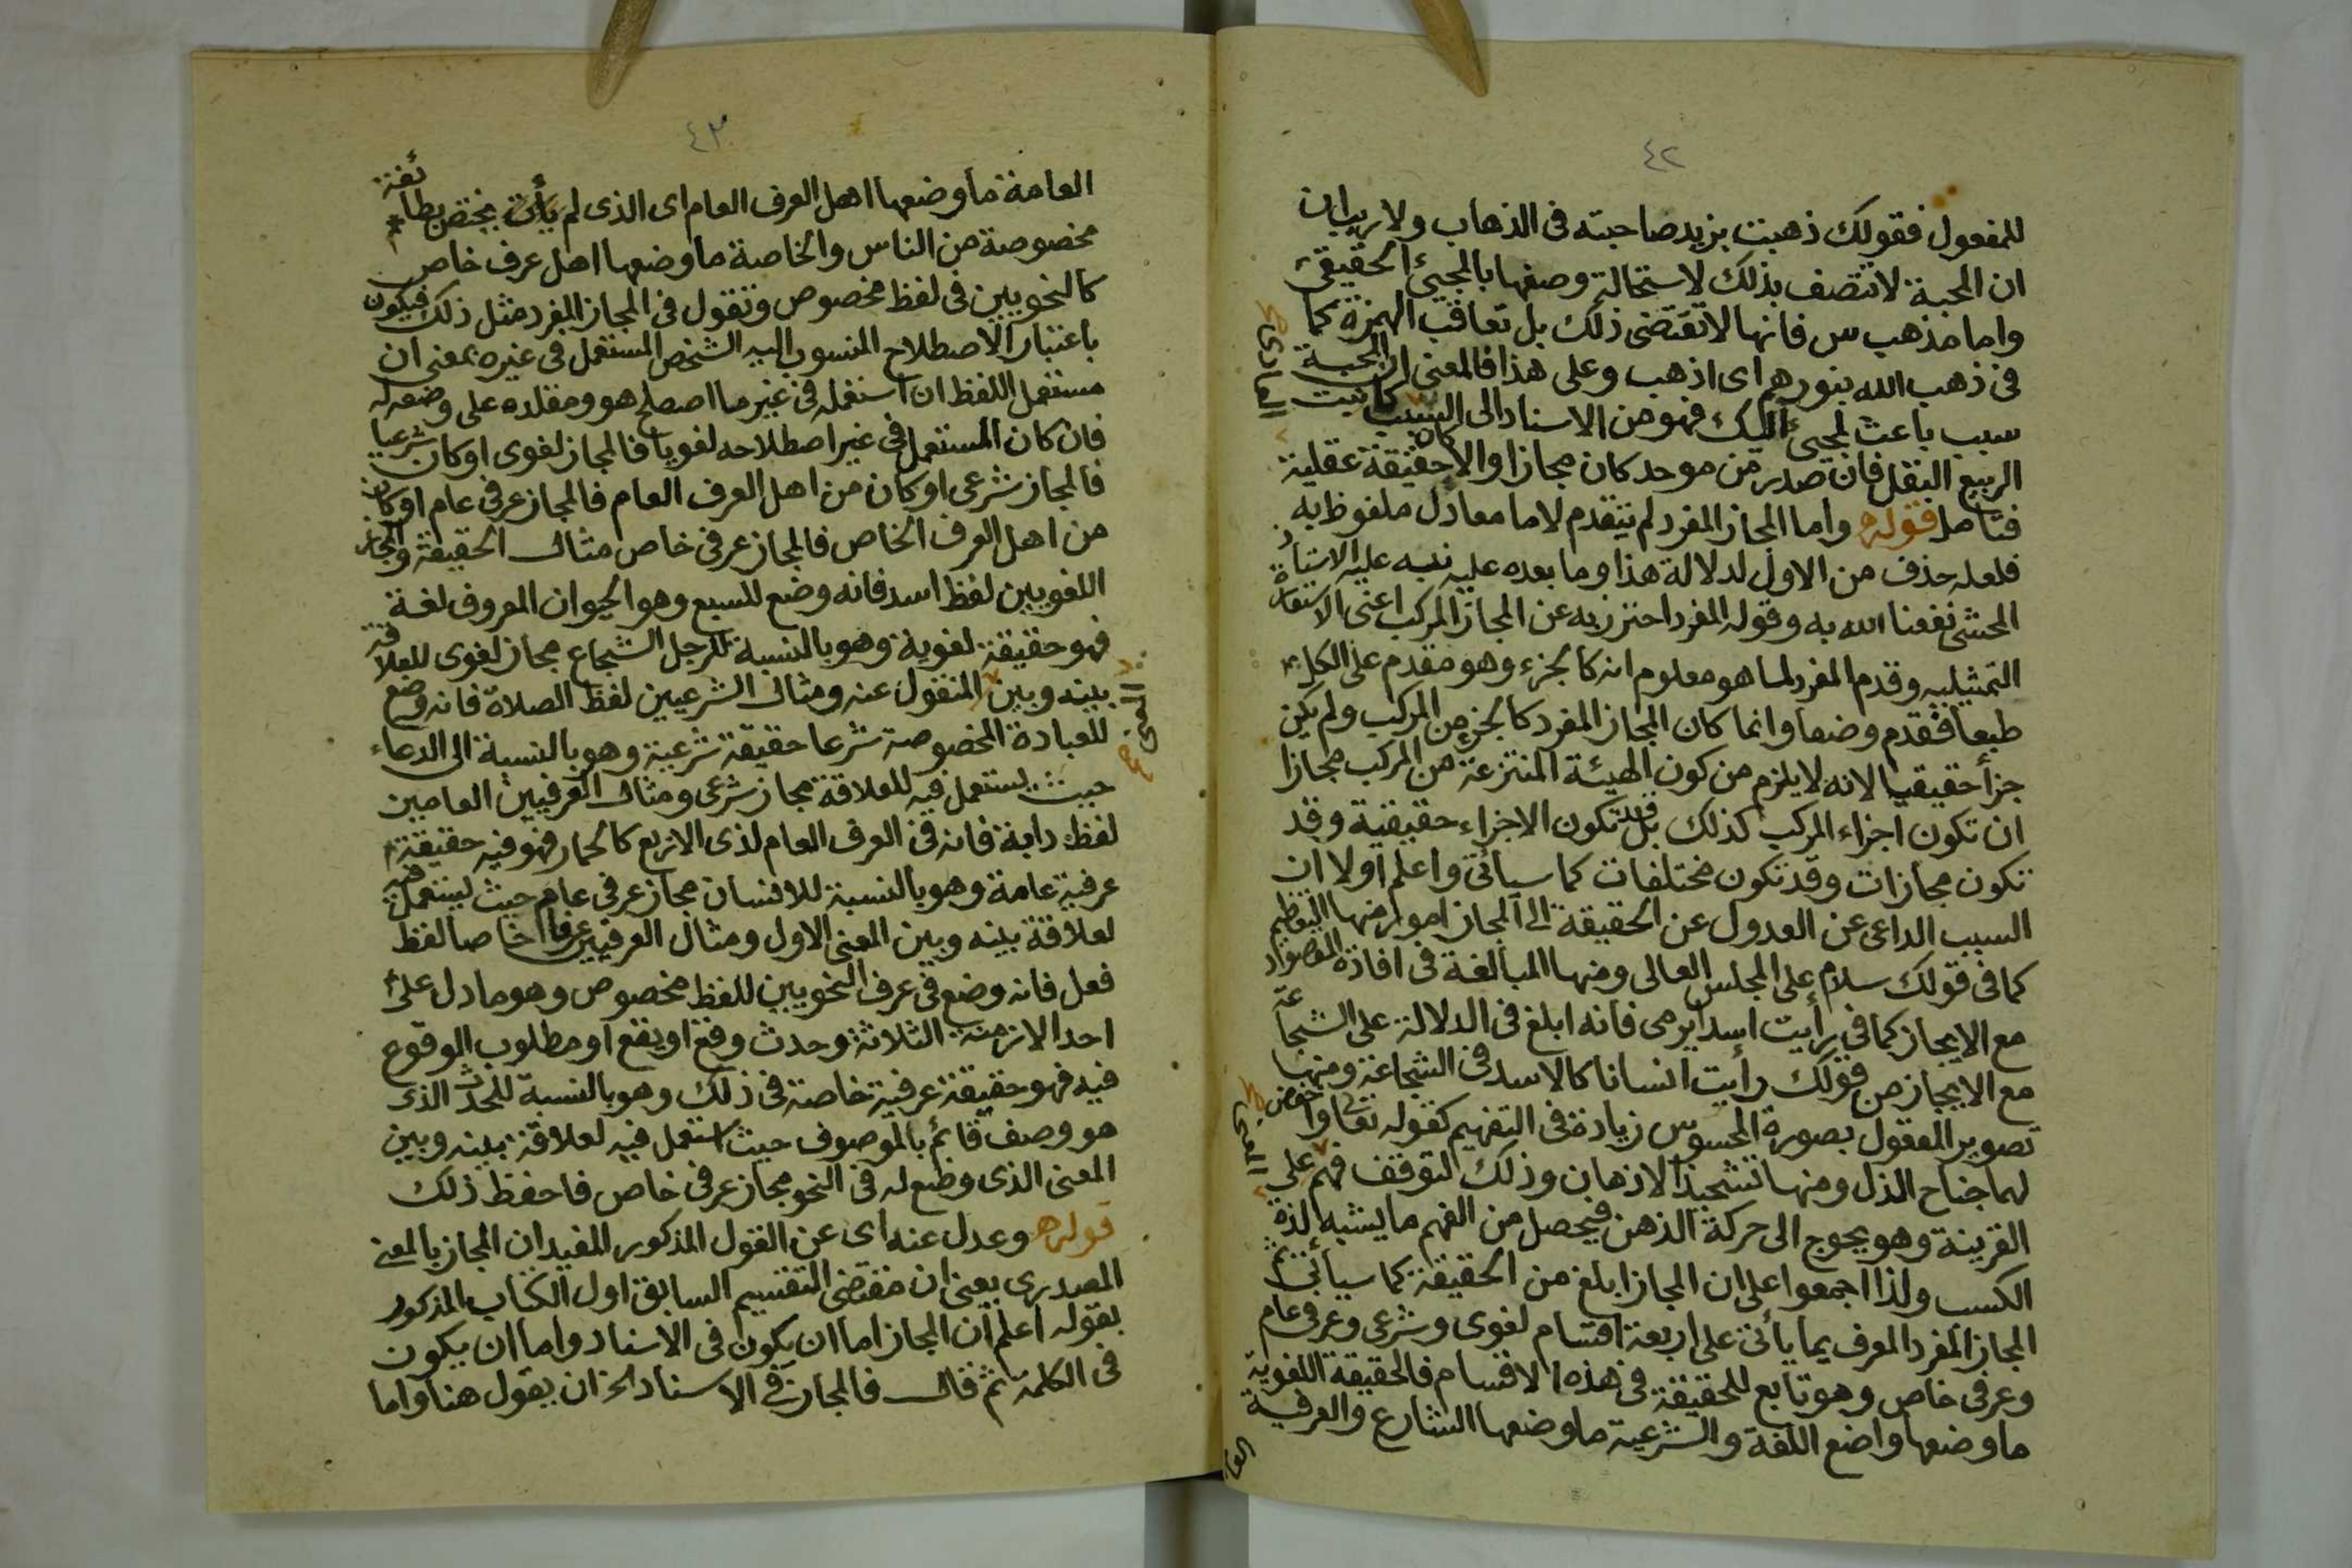 ٤٢
للمفعول فقولك ذهبت بزيد صاحبته فى الذهاب ولا ريب ان
ان المحبة لا تتصف بذلك لاستحالة وصفها بالمجيئ الحقيقى
واما مذهب س فانها لا تقتضى ذلك بل تعاقب الهمزة كما
فى ذهب الله بنورهم اى اذهب وعلى هذا فالمعنى ان المحبة
سبب باعث لمجيئ اليك فهو من الاسناد الى السبب كانبت
الربيع البقل فان صدر من موحد كان مجازا والا كان حقيقة عقلية
فتامل قوله واما المجاز المفرد لم يتقدم لاما معادل ملفوظ به
فلعله حذف من الاول لدلالة هذا وما بعده عليه نبه عليه الاستاذ
المحشى نفعنا الله به وقوله المفرد احترز به عن المجاز المركب اعنى الاستعارة
التمثيليه وقدم المفرد لما هو معلوم انه كالجزء وهو مقدم على الكل
طبعا فقدم وضعا وانما كان المجاز المفرد كالجزء من المركب ولم يكن
جزأ حقيقيا لانه لا يلزم من كون الهيئة المنتزعة من المركب مجازا
ان تكون اجزاء المركب كذلك بل قد تكون الاجزاء حقيقية وقد
تكون مجازات وقد تكون مختلفات كما سيأتى واعلم اولا ان
السبب الداعى عن العدول عن الحقيقة الى المجاز امور منها التعظيم
كما فى قولك سلام على المجلس العالى ومنها المبالغة فى افادة المقصود
مع الايجاز كما فى رأيت اسدا يرمى فانه ابلغ فى الدلالة على الشجاعة
مع الايجاز من قولك رأيت انسانا كالاسد فى الشجاعة ومنها
تصوير المعقول بصورة المحسوس زيادة فى التفهيم كقوله تعالى واخفض
لهما جناح الذل ومنها تشحيذ الاذهان وذلك لتوقف فهم على
القرينة وهو يحوج الى حركة الذهن فيحصل من الفهم ما يشبه لذة
الكسب ولذا اجمعوا على ان المجاز ابلغ من الحقيقة كما سيأتى ثم
المجاز المفرد المعرف بما يأتى على اربعة اقسام لغوى وشرعى وعرفى عام
وعرفى خاص وهو تابع للحقيقة فى هذه الاقسام فالحقيقة اللغوية
ما وضعها واضع اللغة والشرعية ما وضعها الشارع والعرفية
العا
العادى صح
المعنى صح
٤٣
العامة ما وضعها اهل العرف العام اى الذى لم يختص بطائفة
مخصوصة من الناس والخاصة ما وضعها اهل عرف خاص
كالنحويين فى لفظ مخصوص وتقول فى المجاز المفرد مثل ذلك فيكون
باعتبار الاصطلاح المنسوب اليه الشخص المستعمل فى غيره بمعنى ان
مستعمل اللفظ ان استعمله فى غير ما اصطلح هو ومقلده على وضعه له
فان كان المستعمل فى غير اصطلاحه لغويا فالمجاز لغوى او كان شرعيا
فالمجاز شرعى او كان من اهل العرف العام فالمجاز عرفى عام او كان
من اهل العرف الخاص فالمجاز عرفى خاص مثال الحقيقة والمجاز
اللغويين لفظ اسد فانه وضع للسبع وهو الحيوان المعروف لغة
فهو حقيقة لغوية وهو بالنسبة للرجل الشجاع مجاز لغوى للعلاقة
بينه وبين المنقول عنه ومثال الشرعيين لفظ الصلاة فانه وضع
للعبادة المخصوصة شرعا حقيقة شرعية وهو بالنسبة الى الدعاء
حيث يستعمل فيه للعلاقة مجاز شرعى ومثال العرفيين العامين
لفظ دابة فانه فى العرف العام لذى الاربع كالحمار فهو فيه حقيقة
عرفية عامة وهو بالنسبة للانسان مجاز عرفى عام حيث يستعمل فيه
لعلاقة بينه وبين المعنى الاول ومثال العرفيين عرفا خاصا لفظ
فعل فانه وضع فى عرف النحويين للفظ مخصوص وهو ما دل على
احد الازمنة الثلاثة وحدث وقع او يقع او مطلوب الوقوع
فيه فهو حقيقة عرفية خاصة فى ذلك وهو بالنسبة للحدث الذى
هو وصف قائم بالموصوف حيث استعمل فيه لعلاقة بينه وبين
المعنى الذى وضع له فى النحو مجاز عرفى خاص فاحفظ ذلك
قوله وعدل عنه اى عن القول المذكور المفيد ان المجاز بالمعنى
المصدرى يعنى ان مقتضى التقسيم السابق اول الكتاب المذكور
بقوله اعلم ان المجاز اما ان يكون فى الاسناد واما ان يكون
فى الكلمة ثم قال فالمجاز فى الاسناد الخ ان يقول هنا واما
المعنى صح